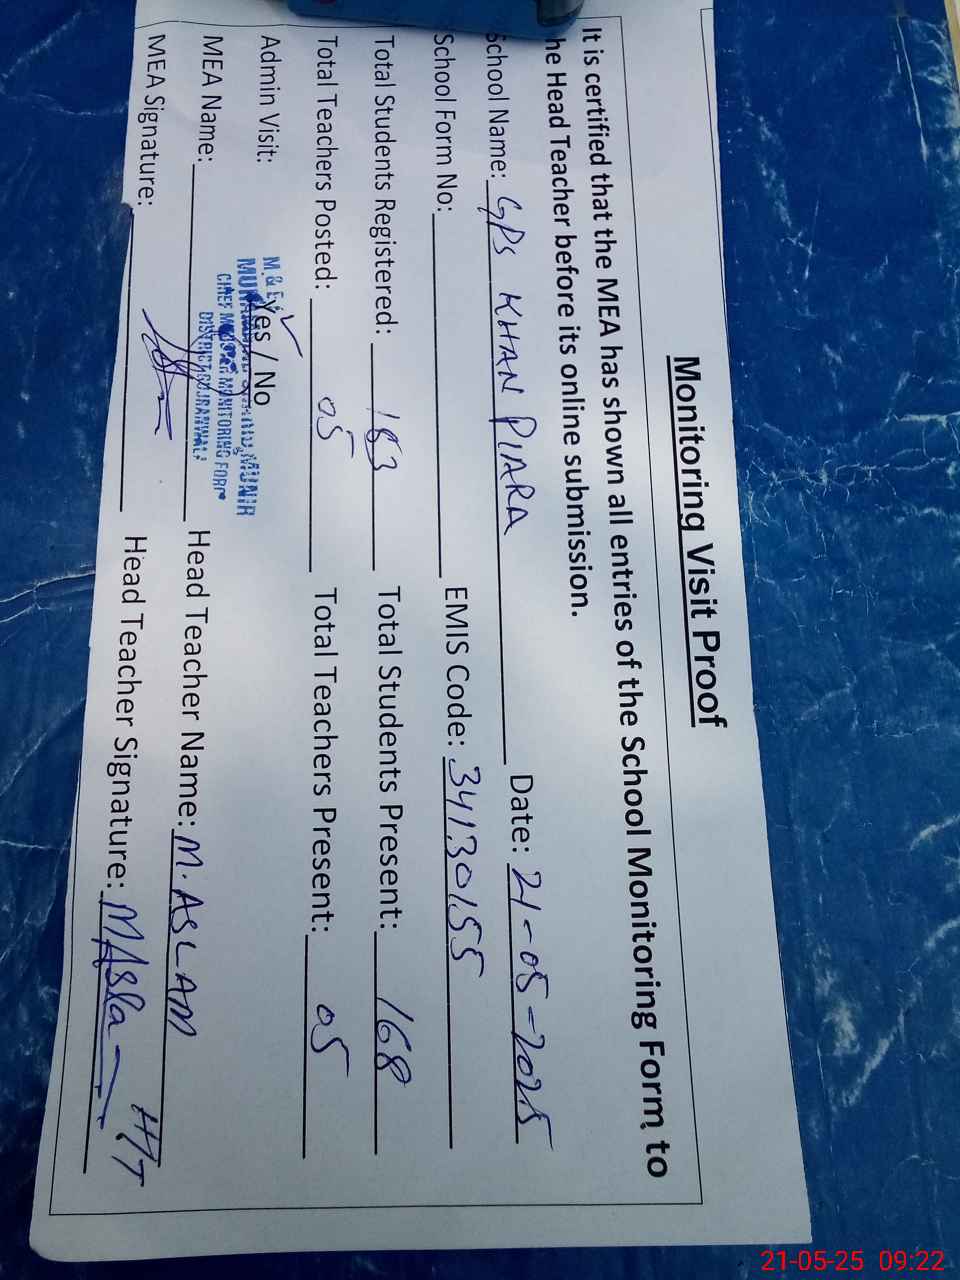 Monitoring Visit Proof
It is certified that the MEA has shown all entries of the School Monitoring Form to
he Head Teacher before its online submission.
School Name: GPS KHAN PIARA Date: 21-05-2025
School Form No: EMIS Code: 34130155
Total Students Registered: Total Students Present: 168
Total Teachers Posted: 05 Total Teachers Present: 05
Admin Visit: Yes / No
M. & E
MUNIR
MONITORING FORC
DISTRICT GUJRANWALA
MEA Name: Head Teacher Name: M. ASLAM
MEA Signature: Head Teacher Signature: MAsla HT
21-05-25 09:22